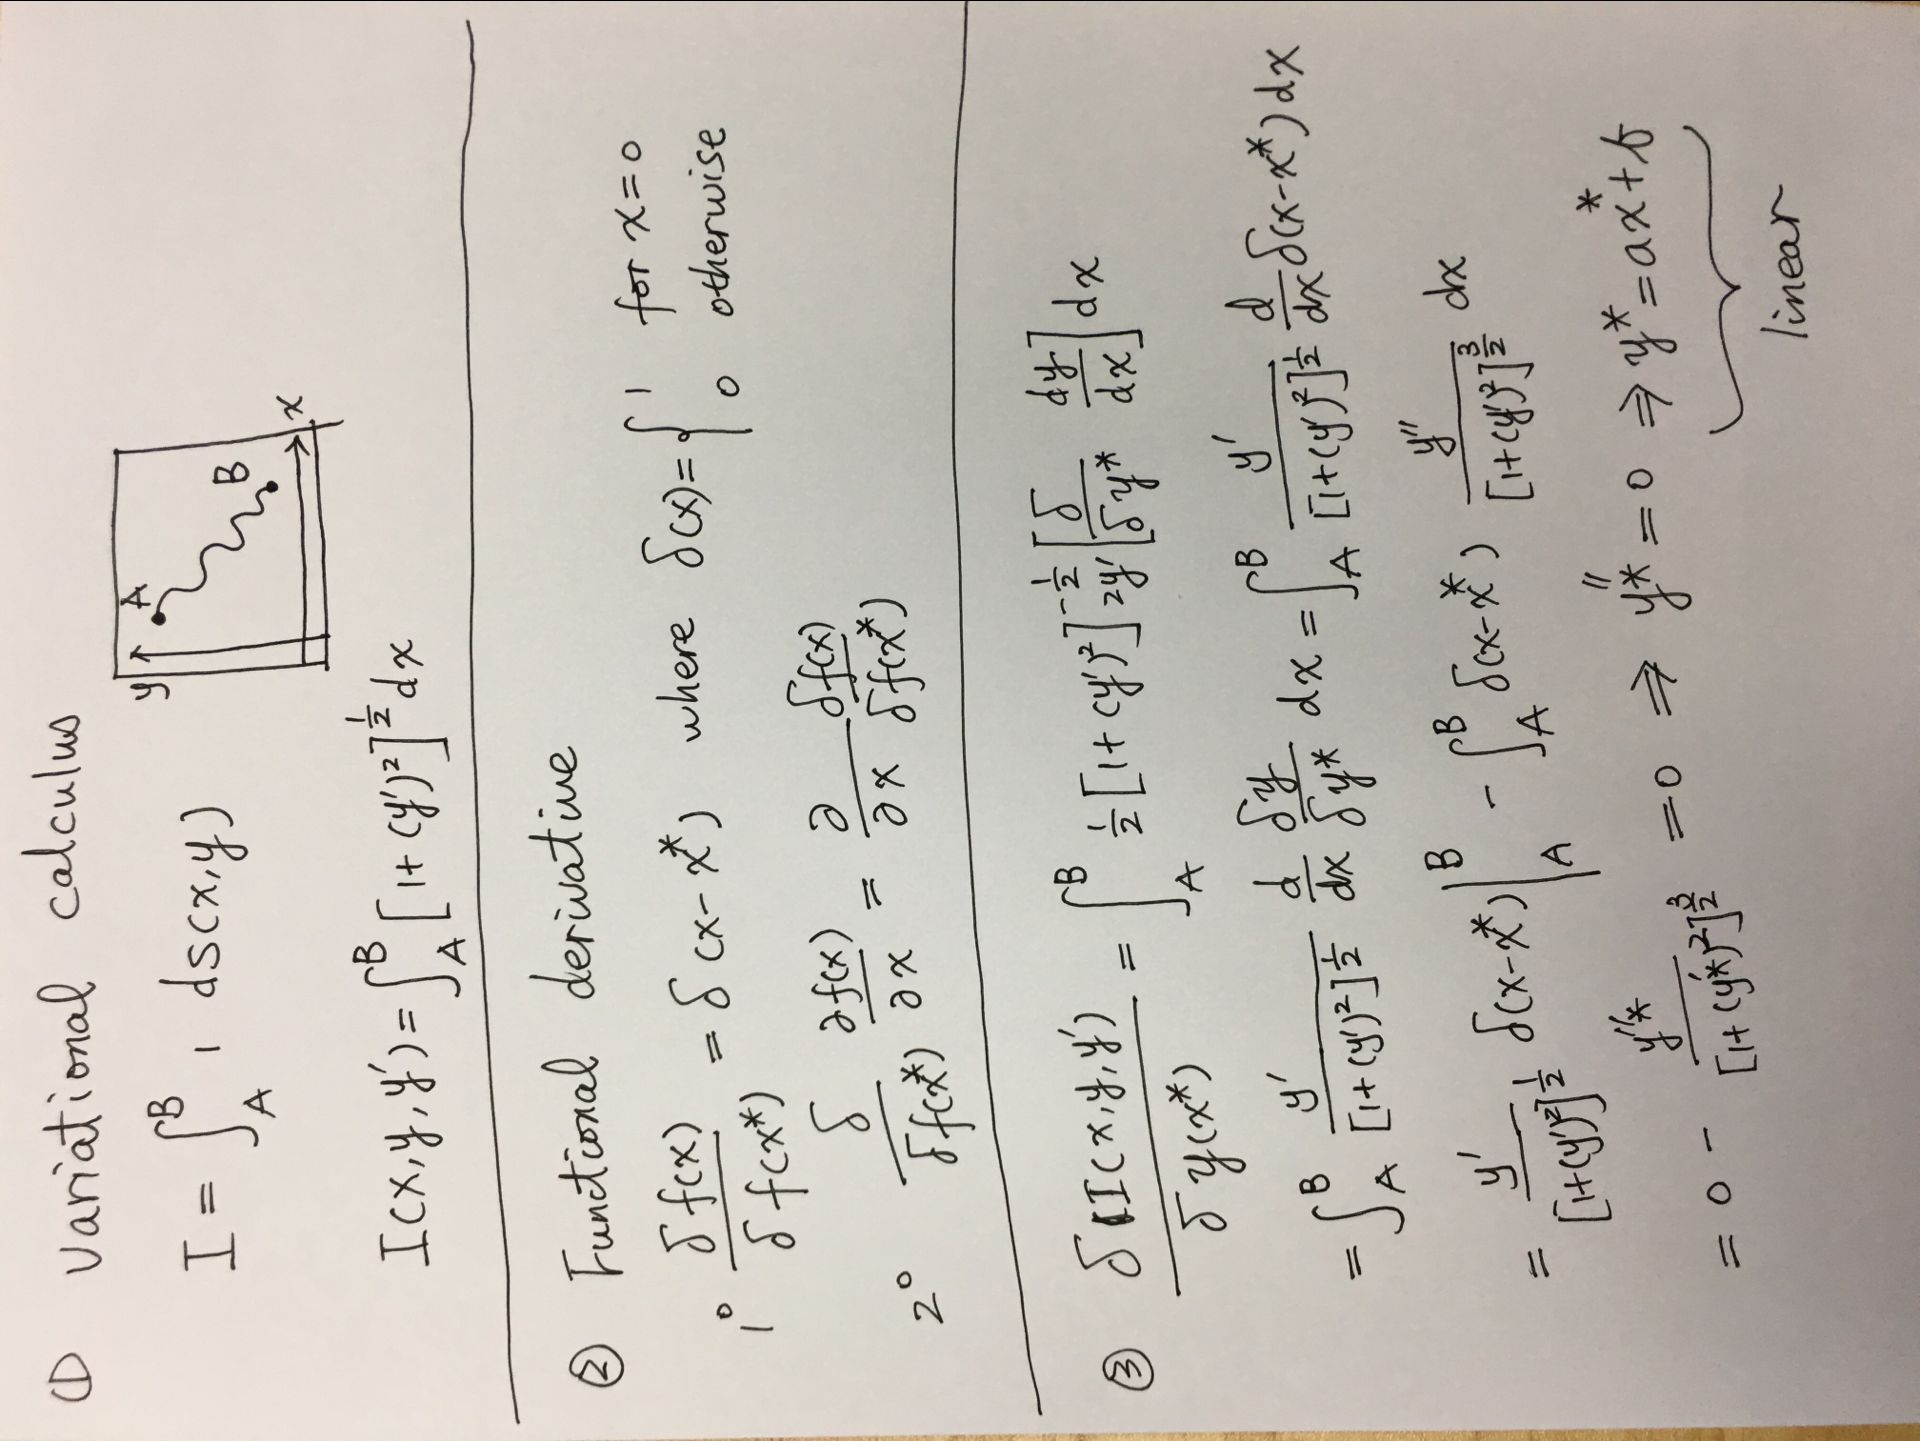 ① variational calculus
I = ∫_A^B 1 ds(x,y)
y A B x
I(x,y,y′) = ∫_A^B [1+(y′)²]^{1/2} dx
② Functional derivative
1° δf(x)/δf(x*) = δ(x-x*) where δ(x) = { 1 for x=0
0 otherwise
2° δ/δf(x*) ∂f(x)/∂x = ∂/∂x δf(x)/δf(x*)
③ δI(x,y,y′)/δy(x*) = ∫_A^B 1/2 [1+(y′)²]^{-1/2} 2y′ [δ/δy* dy/dx] dx
= ∫_A^B y′/[1+(y′)²]^{1/2} d/dx δy/δy* dx = ∫_A^B y′/[1+(y′)²]^{1/2} d/dx δ(x-x*) dx
= y′/[1+(y′)²]^{1/2} δ(x-x*) |_A^B - ∫_A^B δ(x-x*) y″/[1+(y′)²]^{3/2} dx
= 0 - y″*/[1+(y′*)²]^{3/2} = 0 ⇒ y″* = 0 ⇒ y* = ax* + b
linear